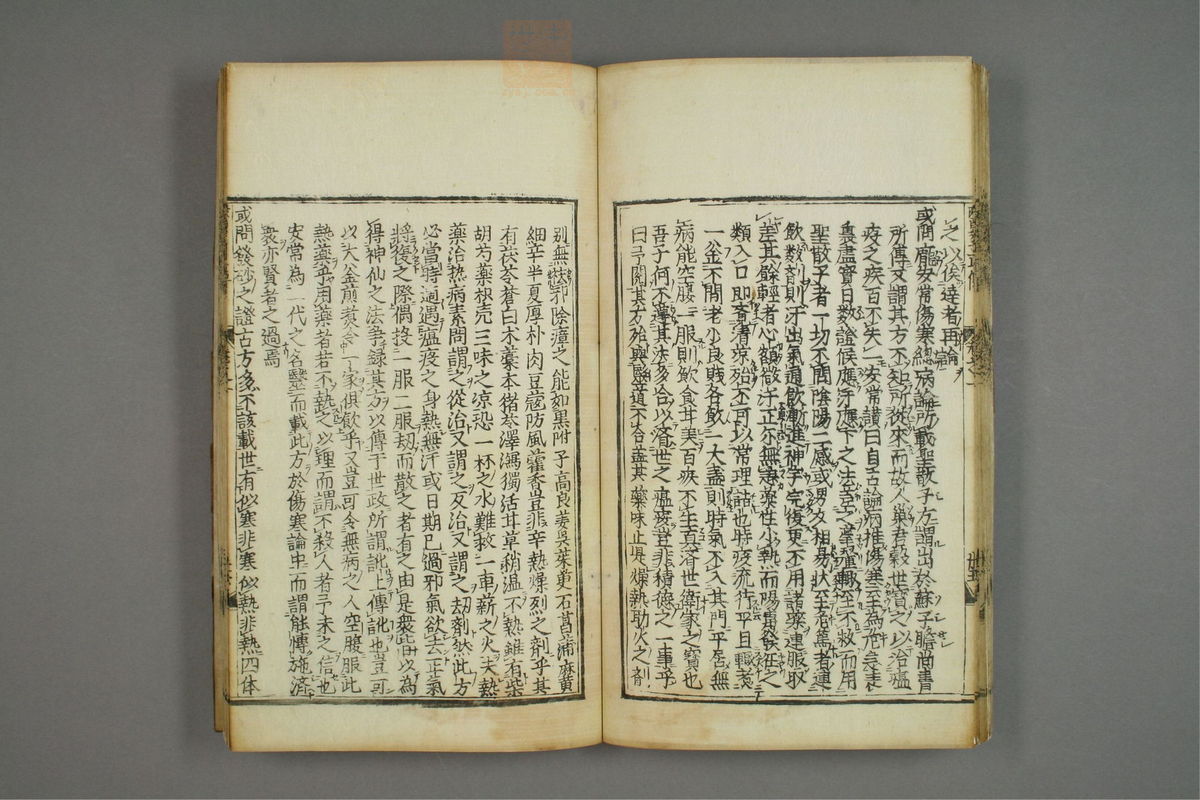 之以俟達者再論
或問龐安常傷寒總病論所載聖散子方謂出於蘇子瞻尚書
所傳又謂其方不知所從來而故人巢君穀世寶之以治瘟
疫之疾百不失一安常讃曰自古論病惟傷寒至為危急表
裏虛實日數證候應汗應下之法差之毫釐輒至不救而用
聖散子者一切不問陰陽二感或男女相易狀至危篤者連
飲數劑則汗出氣通飲食漸進神宇完復更不用諸藥連服取
差其餘輕者心額微汗正亦無恙藥性小熱而陽毒發狂之
類入口即覺清涼殆不可以常理詰也時疫流行平旦輒煮
一釜不問老少良賤各飲一大盞則時氣不入其門平居無
病能空腹一服則飲食甘美百疾不生真濟世衛家之寶也
吾子何不遵其法多合以濟世之瘟疫豈非積德之一事乎
曰予閱其方殆與醫道不合蓋其藥味止是燥熱助火之劑
別無祛邪除瘴之能如黑附子高良姜吳茱萸石菖蒲麻黃
細辛半夏厚朴肉豆蔻防風藿香豈非辛熱燥烈之劑乎其
有茯苓蒼白朮藁本猪苓澤瀉獨活甘草稍温不熱雖有柴
胡芍藥枳壳三味之凉恐一杯之水難救一車薪之火夫熱
藥治熱病素問謂之從治又謂之反治又謂之刼劑然此方
必當時適遇瘟疫之身熱無汗或日期已過邪氣欲去正氣
將復之際偶投一服二服刼而散之者有之由是衆皆以為
得神仙之法爭録其方以傳于世政所謂訛上傳訛也豈可
以大釜煎煑令一家俱飲乎又豈可令無病之人空腹服此
熱藥乎用藥者若不執之以理而謂不殺人者予未之信也
安常為一代之名醫而載此方於傷寒論中而謂能愽施濟
衆亦賢者之過焉
或問發砂之證古方多不該載世有似寒非寒似熱非熱四体